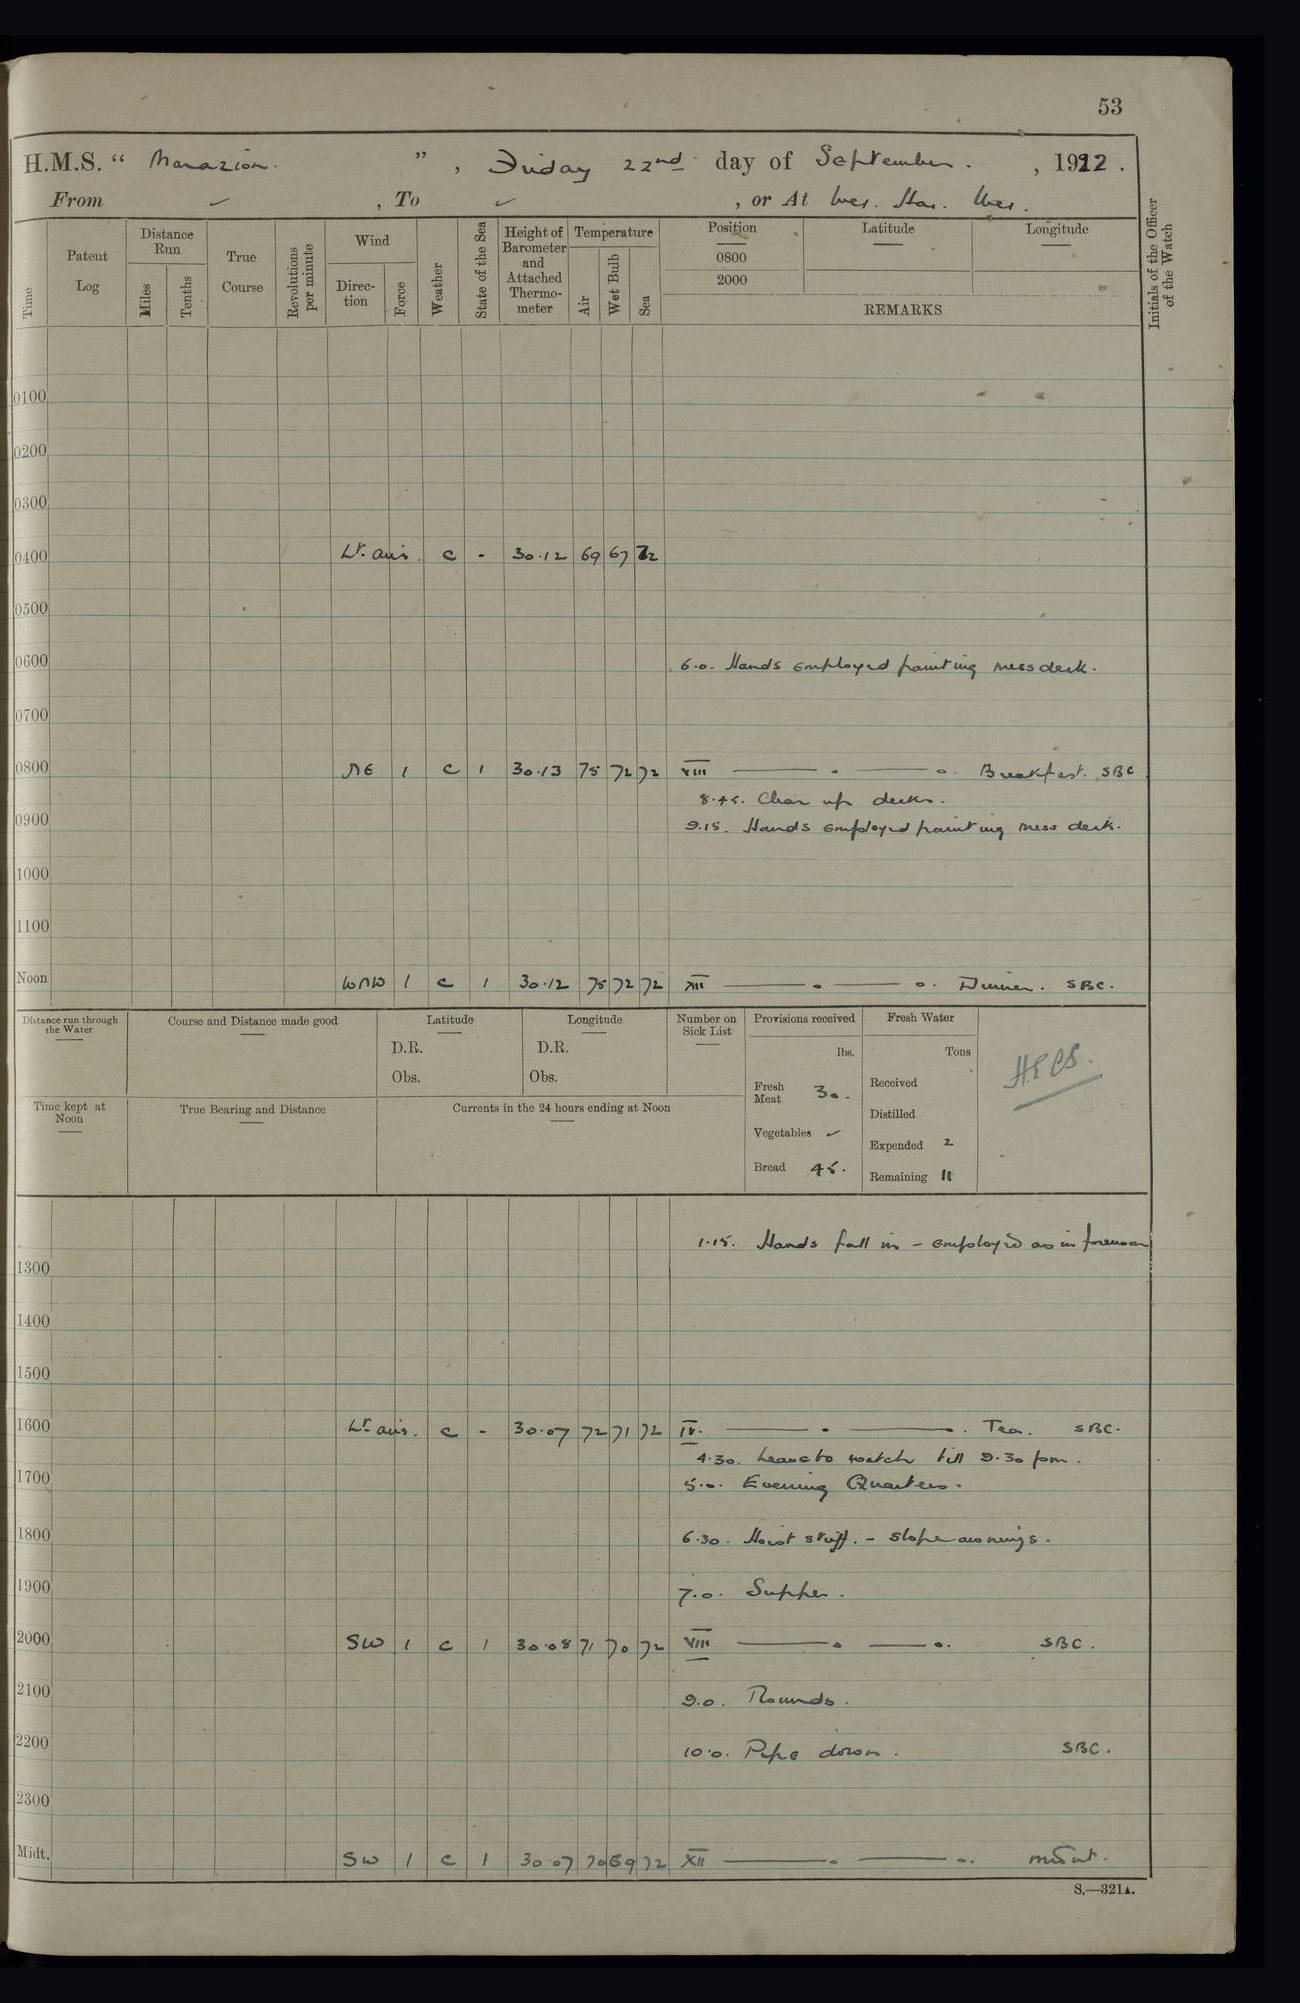 53
H.M.S. “ Marazion. ” , Friday 22nd day of September. , 1922.
From ✓ , To ✓ , or At Wei. Hai. Wei.
Time
Patent Log
Distance Run
Miles
Tenths
True Course
Revolutions per minute
Wind
Direction
Force
Weather
State of the Sea
Height of Barometer and Attached Thermometer
Temperature
Air
Wet Bulb
Sea
Position
Latitude
Longitude
0800
2000
REMARKS
Initials of the Officer of the Watch
0100
0200
0300
0400 Lt. airs. c - 30.12 69 67 72
0500
0600 6.0. Hands employed painting mess deck.
0700
0800 NE 1 c 1 30.13 75 72 72 VIII Breakfast. SBC
8.45. Clear up decks.
0900 9.15. Hands employed painting mess deck.
1000
1100
Noon WNW 1 c 1 30.12 75 72 72 XII Dinner. SBC.
Distance run through the Water
Course and Distance made good
Latitude
D.R.
Obs.
Longitude
D.R.
Obs.
Number on Sick List
Provisions received
lbs.
Fresh Meat 30.
Vegetables ✓
Bread 45.
Fresh Water
Tons
Received
Distilled
Expended 2
Remaining 11
Time kept at Noon
True Bearing and Distance
Currents in the 24 hours ending at Noon
1.15. Hands fall in - employed as in forenoon
1300
1400
1500
1600 Lt. airs. c - 30.07 72 71 72 IV. Tea. SBC.
4.30. Leave to watch till 9.30 pm.
1700 5.0. Evening Quarters.
1800 6.30. Hoist skiff. - slope awnings.
1900 7.0. Supper.
2000 SW 1 c 1 30.08 71 70 72 VIII SBC.
2100 9.0. Rounds.
2200 10.0. Pipe down. SBC.
2300
Midt. SW 1 c 1 30.07 70 69 72 XII
S.—321A.